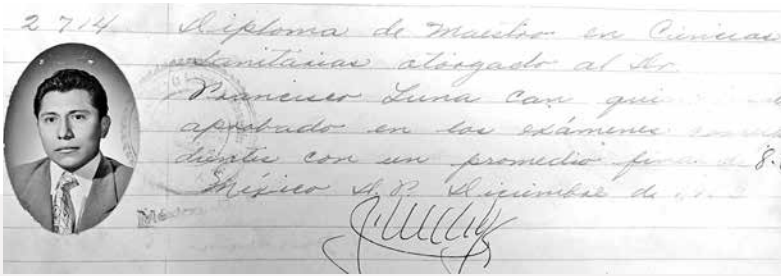 2714 Diploma de Maestro en Ciencias
Sanitarias otorgado al Dr.
Francisco Luna Can qui
aprobado en los exámenes
dientes con un promedio final de 8.
México D.F. Diciembre de